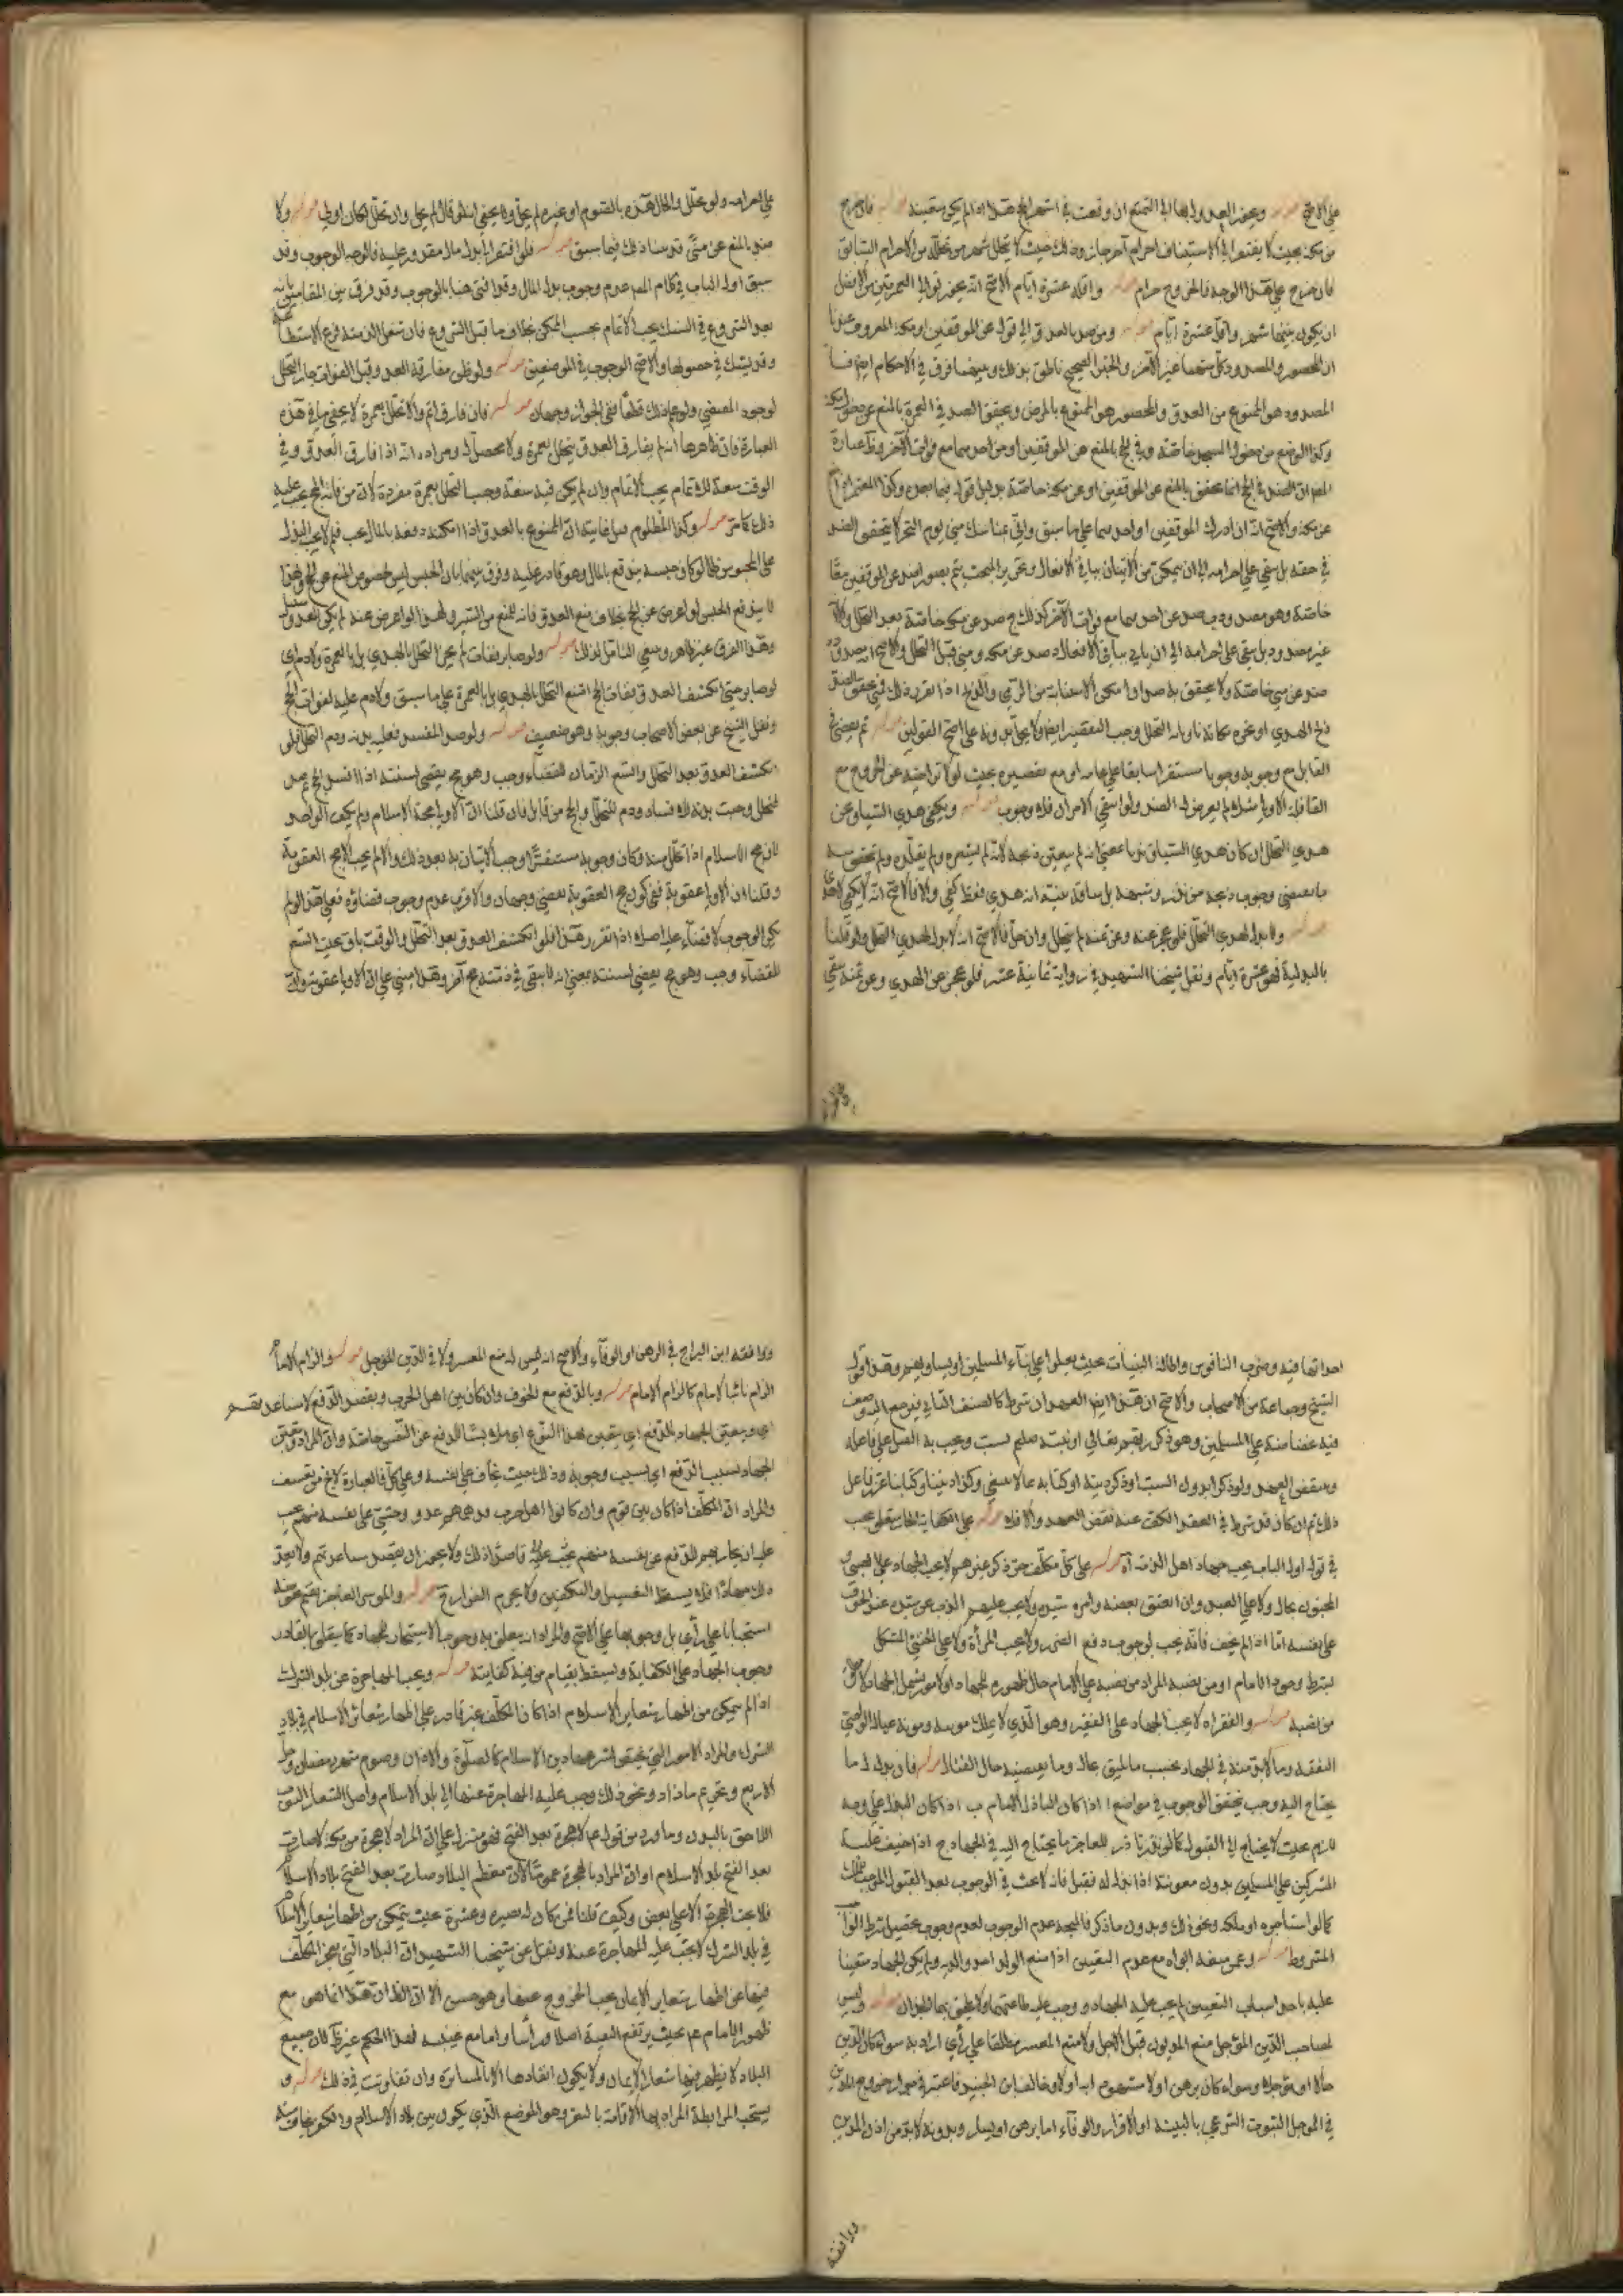 على الاصح ويجوز العدول بها الى التمتع ان وقعت في اشهر الحج هذا اذا لم يكن متعينة فان خرج
من مكة بحيث لا يفتقر الى استيناف احرام آخر جاز وذلك حيث لا تخلل شهر من تحلله من الاحرام السابق
فان خرج على هذا الوجه فالخروج حرام واقله عشرة ايام الاصح انه يجوز توالي العمرتين والافضل
ان يكون بينهما شهر واقله عشرة ايام ومن صد بالعدو الى قوله عن الموقفين او مكة المعروف عندنا
ان المحصور والمصدود كل منهما غير الآخر والخبر الصحيح ناطق بذلك وبينهما فرق في الاحكام ايضا
المصدود هو الممنوع من العدو والمحصور هو الممنوع بالمرض ويتحقق الصد في العمرة بالمنع عن دخول مكة
وكذا لو منع من دخول المسجد خاصة وفي الحج بالمنع عن الموقفين او من احدهما مع فوات الآخر وعبارة
المص ان الصد في الحج انما يتحقق بالمنع عن الموقفين او عن مكة خاصة بدليل قوله فيما بعد وكذا المعتمر اذا منع
عن مكة والاصح انه ان ادرك الموقفين او احدهما على ما سبق وبقي مناسك منى يوم النحر لا يتحقق الصد
في حقه بل يبقى على احرامه الى ان يتمكن من الاتيان بباقي الافعال
خاصة وهو مصدود صد عن احدهما مع فوات الآخر كذلك صد عن مكة خاصة بعد التحلل
غير مصدود بل يبقى على احرامه الى ان ياتي بباقي الافعال صد عن مكة ومنى قبل التحلل والاصح انه مصدود
صد عن منى خاصة ولا يتحقق به صد اذا امكن الاستنابة في الرمي والذبح اذا تقرر ذلك فمتى تحقق الصد
ذبح الهدي او نحره مكانه ناويا به التحلل وجب التقصير ايضا ولا يحل بدونه على اصح القولين ثم يقضي في
القابل مع وجوبه وجوبا مستقرا سابقا على عامه او مع تقصيره بحيث لولا تراخيه عن الخروج مع
القافلة الاولى مثلا لم يعرض له الصد ولو انتفى الامران فلا وجوب ويكفي هدي السياق عن
هدي التحلل ان كان هدي السياق ندبا بمعنى انه لم يتعين ذبحه لانه لم يشعره ولم يقلده ولم يتحقق سبب
ما يقتضي وجوب ذبحه من نذر وشبهه بل ساقه بنية انه هدي فقط كفى والا فالاصح انه لا يكفي لاحد
ولا بدل لهدي التحلل فلو عجز عنه وعن ثمنه لم يتحلل وان حل فالاصح انه لا بدل لهدي التحلل ولو قلنا
بالبدلية فهو عشرة ايام ونقل شيخنا الشهيد في رواية ثمانية عشر فلو عجز عن الهدي وعن ثمنه بقي
على احرامه ولو تحلل والحال هذه بالصوم او غيره لم يحل ولا يخفى انه لو قال لم يحل وان تحلل لكان اولى ولا
صد بالمنع عن منى قد بينا ذلك فيما سبق فلو افتقر الى بذل مال مقدور عليه فالوجه الوجوب وقد
سبق اول الباب في كلام المص عدم وجوب بذل المال وقد افتى هنا بالوجوب وقد فرق بين المقامين بانه
بعد الشروع في النسك يجب الاتمام بحسب الممكن بخلاف ما قبل الشروع فان شغل الذمة فرع الاستطاعة
وقد يشك في حصولها والاصح الوجوب في الموضعين ولو ظن مفارقة العدو قبل الفوات جاز التحلل
لوجود المقتضي ولو علم ذلك قطعا ففي الجواز وجهان فان فارق اتم والا تحلل بعمرة لا يخفى ما في هذه
العبارة فان ظاهرها انه لم يفارق العدو يتحلل بعمرة ولا محصل له ومراده انه اذا فارق العدو وفي
الوقت سعة للاتمام يجب الاتمام وان لم يكن فيه سعة وجب التحلل بعمرة مفردة لان من فاته الحج يجب عليه
ذلك كما مر وكذا المظلوم ان الممنوع بالعدو اذا امكنه دفعه بالمال يجب فلم لا يجب البذل
على المحبوس ظلما لو كان حبسه يندفع بالمال وهو قادر عليه وفرق بينهما بان الحبس ليس لخصوص المنع من الحج ولهذا
لا يندفع الحبس لو اعرض عن الحج بخلاف منع العدو فانه للمنع من السير ولهذا لو اعرض عنه لم يكن للعدو
وهذا الفرق غير ظاهر وينبغي التأمل لذلك ولو صابر ففات لم يجز التحلل بالهدي بل بالعمرة ولا دم اي
لو صابر حتى انكشف العدو ففات الحج امتنع التحلل بالهدي بل بالعمرة على ما سبق ولا دم عليه لفوات الحج
ونقل الشيخ عن بعض الاصحاب وجوبه وهو ضعيف ولو صد المفسد فعليه بدنة ودم التحلل فلو
انكشف العدو بعد التحلل واتسع الزمان للقضاء وجب وهو حج يقضى لسنته اذا افسد الحج ثم صد
فتحلل وجبت بدنة للافساد ودم للتحلل والحج من قابل فان قلنا ان الاولى حجة الاسلام ولم يكف الواحد
لان حج الاسلام اذا تحلل منه وكان وجوبه مستقرا وجب الاتيان به بعد ذلك والا لم يجب الا حج العقوبة
وقلنا ان الاولى عقوبة ففي كون حج العقوبة يقضى وجهان والاقرب عدم وجوب قضاؤه فعلى هذا لو لم
يكن الوجوب لا قضاء عليه اصلا اذا تقرر هذا فلو انكشف العدو بعد التحلل والوقت باق بحيث اتسع
للقضاء وجب وهو حج يقضى لسنته بمعنى انه لا يبقى في ذمته حج آخر وهذا مبني على ان الاولى عقوبة
احداثها فيه وضرب الناقوس واطالة البنيات بحيث يعلوا على بناء المسلمين او يساويهم وهذا قول
الشيخ وجماعة من الاصحاب والاصح ان هذا ايضا العهد ان شرط كالصنف الثاني
فيه غضاضة على المسلمين وهو ذكر ربهم تعالى او نبيه صلعم بسب ويجب به القتل على فاعله
وينقض العهد ولو ذكرا بدون السب او ذكر دينه او كتابه بما لا ينبغي وكذا ديننا وكتابنا عزر فاعل
ذلك ثم ان كان قد شرط في العقد الكف عنه نقض العهد والا فلا على الكفاية
في قوله اول الباب يجب جهاد اهل الذمة على كل مكلف حر ذكر غير هم لا يجب الجهاد على الصبي و
المجنون بحال ولا على العبد وان اعتق بعضه
على نفسه اما اذا لم يخف فانه يجب لوجوب دفع الضرر ولا يجب المرأة ولا على الخنثى المشكل
يشترط وجود الامام او من نصبه المراد من نصبه على الامام حال ظهوره للجهاد
من نصبه والفقراء لا يجب الجهاد على الفقير وهو الذي لا يملك مونته ومونة عياله الواجبي
النفقة وما لابد منه في الجهاد بحسب ما يليق بحاله وما يعينه حال القتال فان بذل له ما
يحتاج اليه وجب يتحقق الوجوب في مواضع ا اذا كان الباذل الامام ب اذا كان البذل على وجه
لازم بحيث لا يحتاج الى القبول كما لو نذر ناذر للعاجز ما يحتاج اليه في الجهاد ج اذا خيف غلبة
المشركين على المسلمين بدون معونته اذا بذل له فقبل فانه لا بحث في الوجوب بعد القبول
كما لو استاجره او ملكه ونحو ذلك وبدون ما ذكر فالمتجه عدم الوجوب لعدم وجوب تحصيل شرط الواجب
المشروط وعمن منعه ابواه مع عدم التعيين اذا منع الولد احد والديه ولم يكن الجهاد متعينا
عليه باحد اسباب التعيين لم يجب عليه الجهاد و وجب عليه طاعتهما وليس
لصاحب الدين المؤجل منع المديون قبل الاجل ولا منع المعسر مطلقا على رأي اراد به سواء كان الدين
حالا او مؤجلا وسواء كان برهن او لا
في المؤجل الثبوت الشرعي بالبينة او الاقرار والوفاء اما برهن او ويدونه لابد من اذن المدين
ووافقه
ووافقه ابن البراج في الرهن او الوفاء والاصح انه ليس له منع المعسر ولا في الدين المؤجل والزام الامام
الزام نائب الامام كالزام الامام وبالدفع مع الخوف وان كان بين اهل الحرب ويقصد الدفع لا مساعدتهم
اي ويتعين الجهاد للدفع اي يتعين بهذا النوع للدفع عن النفس خاصة وان المراد يتعين
الجهاد بسبب الدفع اي بسبب وجوبه وذلك حيث يخاف على نفسه وعلى كل فالعبارة لا تخلو من تعسف
والمراد ان المكلف اذا كان بين قوم وان كانوا اهل حرب ودهمهم عدو وخشي على نفسه منهم يجب
عليه ان يحاربهم للدفع عن نفسه قاصدا ذلك ولا يجوز ان يقصد مساعدتهم ولا يعد
ذلك جهادا فلا يسقط التغسيل والتكفين ولا يحرم الفرار والموسر العاجز يقيم عوضه
استحبابا على رأي بل وجوبها على الاصح والمراد انه يتعلق به وجوب الاستيجار للجهاد كما يتعلق بالقادر
وجوب الجهاد على الكفاية ويسقط بقيام من فيه كفاية ويجب المهاجرة عن بلد الشرك
اذا لم يتمكن من اظهار شعاير الاسلام اذا كان المكلف غير قادر على اظهار شعائر الاسلام في بلاد
الشرك والمراد الامور التي يختص بشرعها دين الاسلام كالصلوة والاذان وصوم شهر رمضان
الاربع وتحريم ما زاد ونحو ذلك وجب عليه المهاجرة عنها الى بلد الاسلام واصل الشعار الثوب
اللاحق بالبدن وما ورد من قوله عم لا هجرة بعد الفتح فهو منزل على ان المراد لا هجرة من مكة لانها صارت
بعد الفتح بلد الاسلام او ان المراد بالهجرة عموما لان معظم البلاد صارت بعد الفتح بلاد الاسلام
فلا يجب الهجرة الا على بعض وكيف قلنا فمن كان له نصيره وعشيرة بحيث يتمكن من اظهار شعاير الاسلام
في بلد الشرك لا تجب عليه المهاجرة عنه ونقل عن شيخنا الشهيد ان البلاد التي يعجز المكلف
فيها عن اظهار شعاير الايمان يجب الخروج عنها وهو حسن الا ان الظاهر ان هذا انما هو مع
ظهور الامام عم بحيث يرتفع التقية اصلا ورأسا واما مع غيبته فهذا الحكم غير ظاهر لان جميع
البلاد لا يظهر فيها شعار الايمان ولا يكون انفاذها الا بالمساترة وان تفاوتت في ذلك و
يستحب المرابطة المراد بها الاقامة بالثغر وهو الموضع الذي يكون بين بلاد الاسلام والكفر